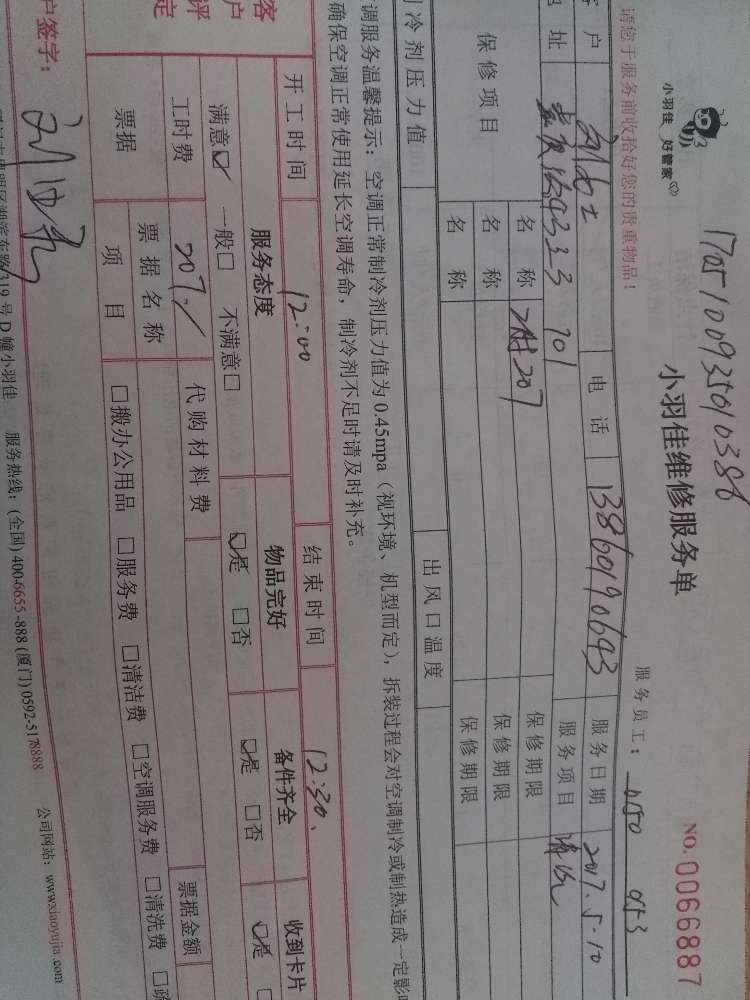 1705100935010386
小羽佳 好管家
小羽佳维修服务单
NO. 0066887
请您于服务前收拾好您的贵重物品!
服务员工:
户
电话
13860190643
服务日期
2017.5.10
址
701
服务项目
清洗
保修项目
名称
207
保修期限
名称
保修期限
名称
保修期限
冷剂压力值
出风口温度
调服务温馨提示: 空调正常制冷剂压力值为0.45mpa(视环境、机型而定), 拆装过程会对空调制冷或制热造成一定影
确保空调正常使用延长空调寿命, 制冷剂不足时请及时补充。
开工时间
12:00
结束时间
12:30
客户评定
服务态度
物品完好
备件齐全
收到卡片
满意☑ 一般□ 不满意□
☑是 □否
☑是 □否
☑是
工时费
207
代购材料费
票据
票据名称
票据金额
项目
□搬办公用品 □服务费 □清洁费 □空调服务费 □清洗费
户签字:
319号D幢小羽佳 服务热线: (全国) 400-6655-888 (厦门) 0592-5178888 公司网站: www.xiaoyujia.com